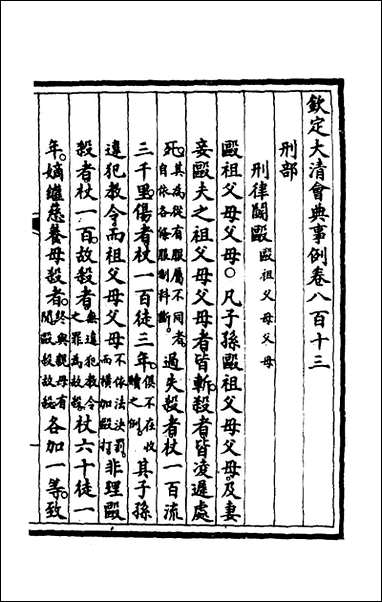 欽定大清會典事例卷八百十三
刑部
刑律鬬毆毆祖父母父母
毆祖父母父母○凡子孫毆祖父母父母及妻
妾毆夫之祖父母父母者皆斬殺者皆凌遲處
死其為從有服屬不同者自依各條服制科斷過失殺者杖一百流
三千里傷者杖一百徒三年俱不在收贖之例其子孫
違犯教令而祖父母父母不依法決罰而橫加毆打非理毆
殺者杖一百故殺者無違犯教令之罪為故殺杖六十徒一
年嫡繼慈養母殺者終與親母有間毆殺故殺各加一等致